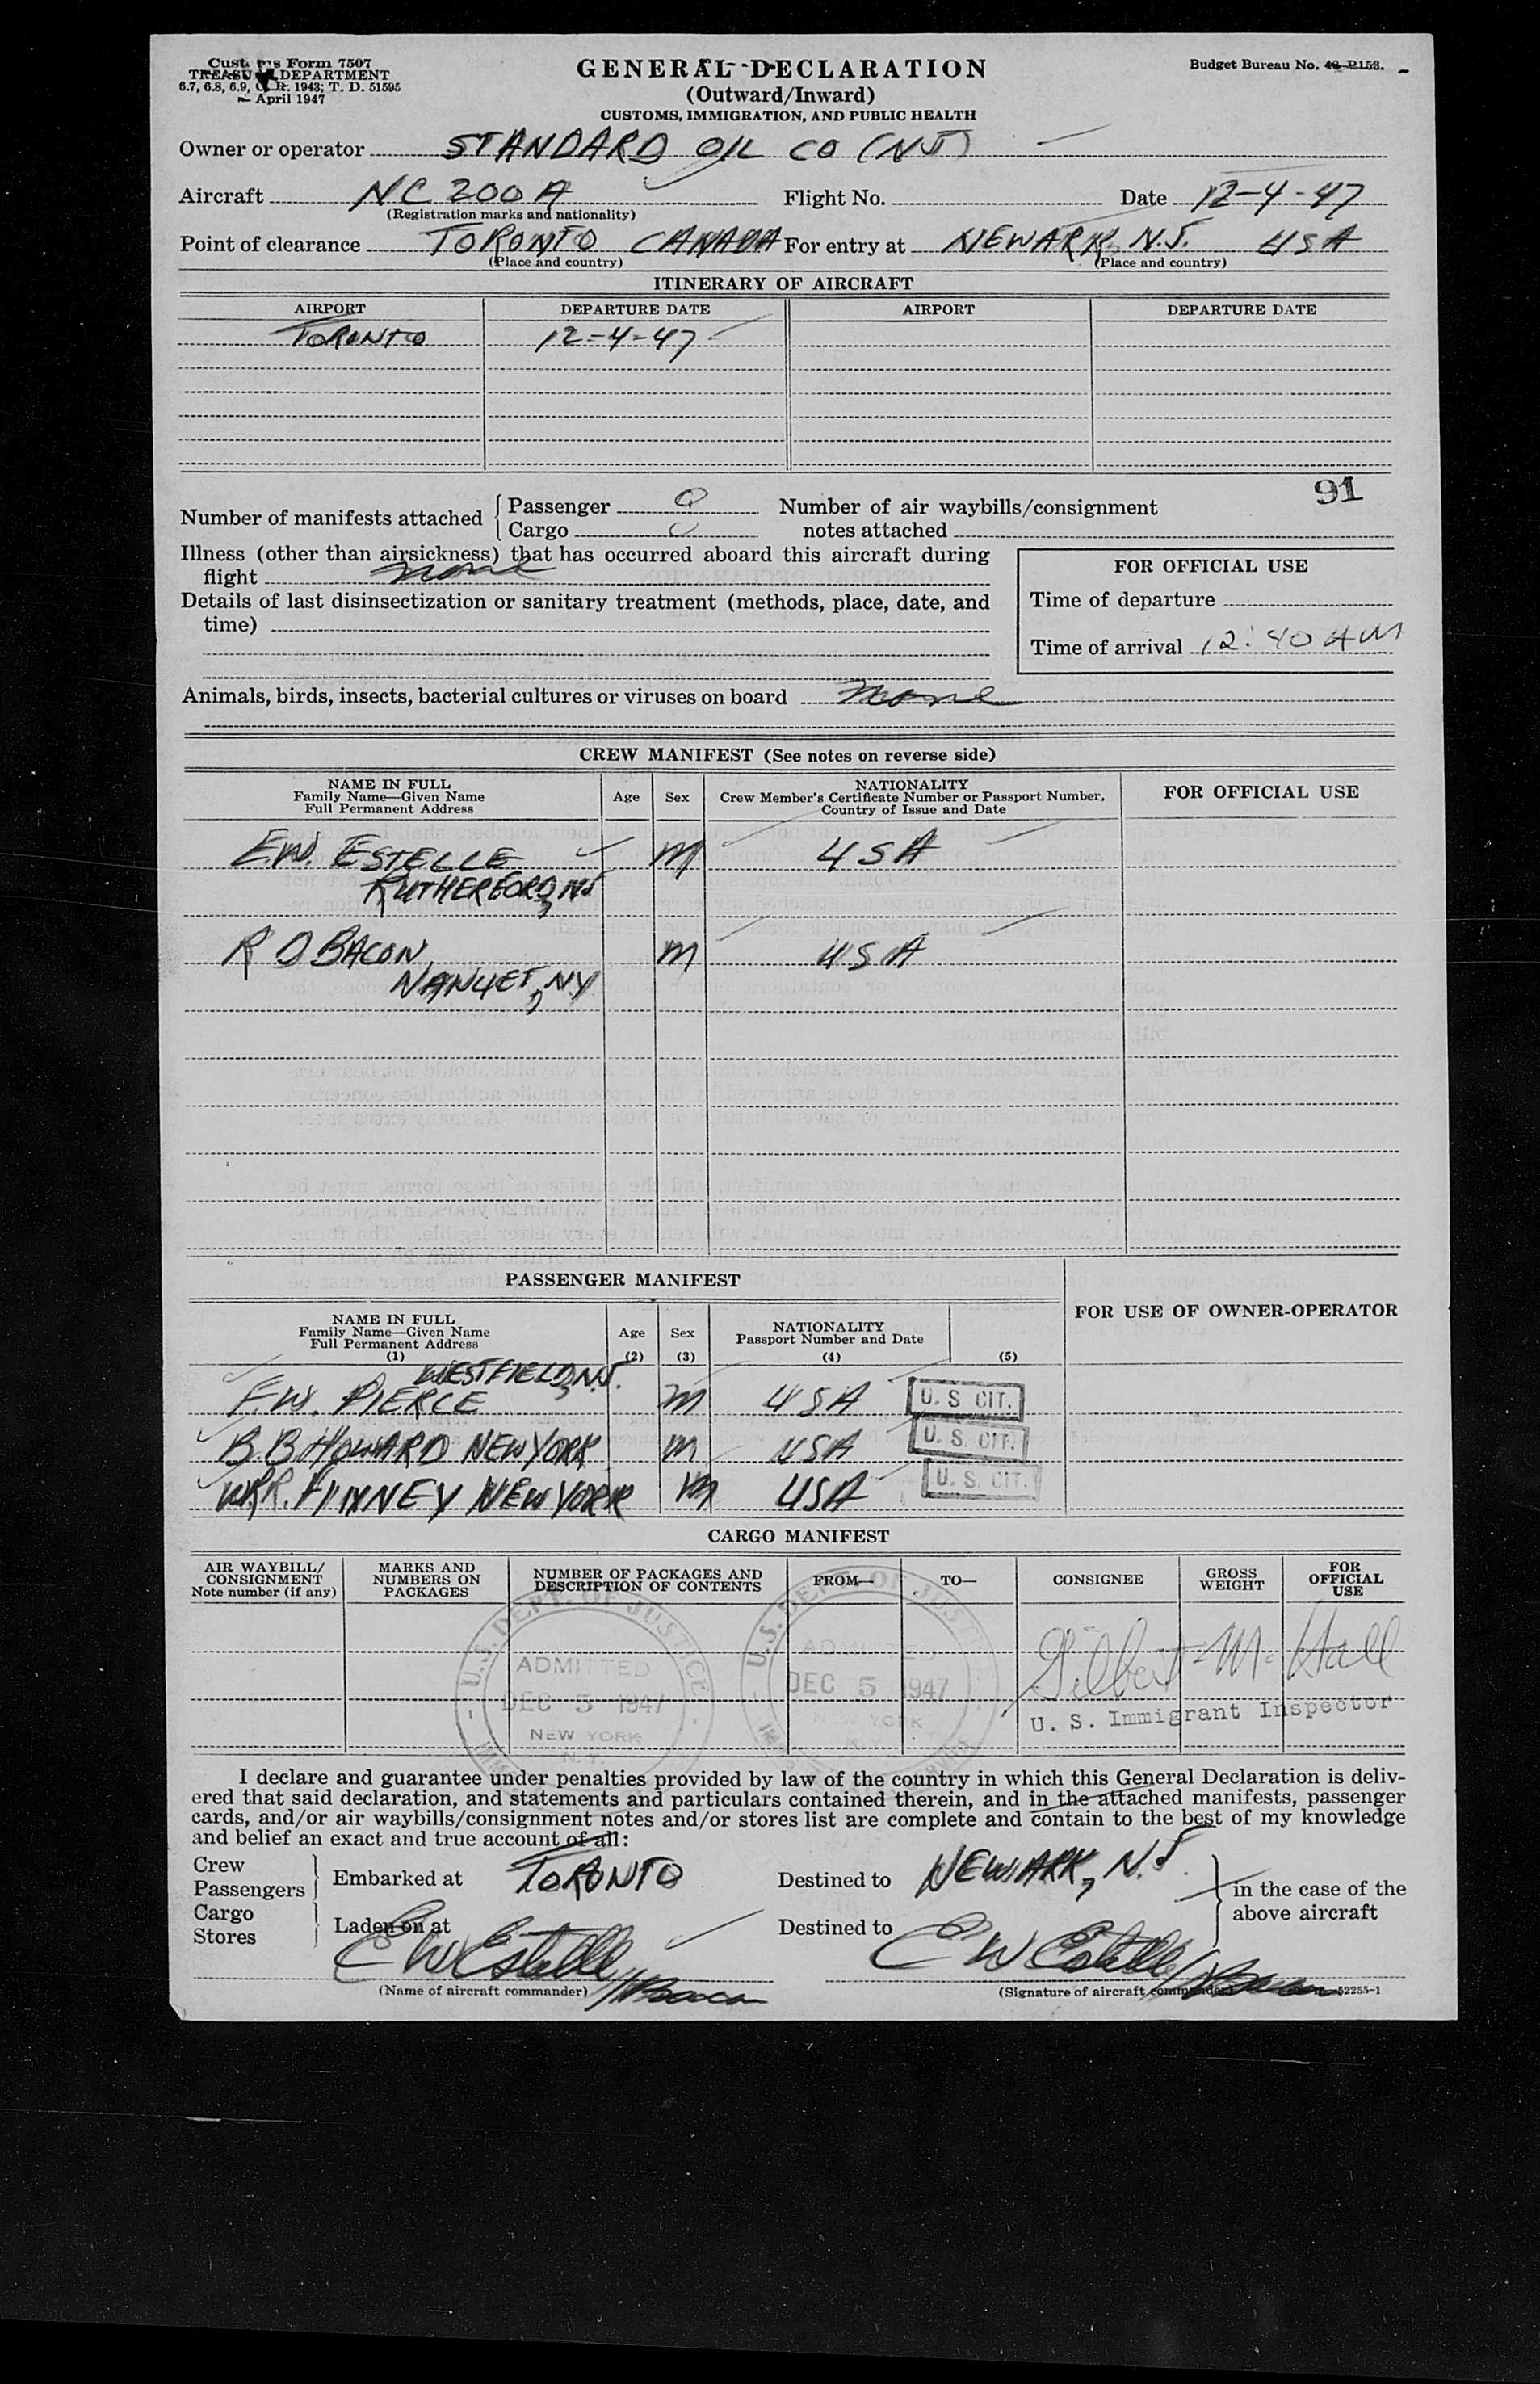 Customs Form 7507
TREASURY DEPARTMENT
6.7, 6.8, 6.9, C. R. 1943; T. D. 51595
April 1947
GENERAL DECLARATION
(Outward/Inward)
CUSTOMS, IMMIGRATION, AND PUBLIC HEALTH
Budget Bureau No.
Owner or operator STANDARD OIL CO (NJ)
Aircraft NC 200A Flight No. Date 12-4-47
(Registration marks and nationality)
Point of clearance TORONTO CANADA For entry at NEWARK, N.J. USA
(Place and country) (Place and country)
ITINERARY OF AIRCRAFT
AIRPORT DEPARTURE DATE AIRPORT DEPARTURE DATE
TORONTO 12-4-47
91
Number of manifests attached { Passenger 0 Number of air waybills/consignment
Cargo 0 notes attached
Illness (other than airsickness) that has occurred aboard this aircraft during
flight none
Details of last disinsectization or sanitary treatment (methods, place, date, and
time)
FOR OFFICIAL USE
Time of departure
Time of arrival 12:40 AM
Animals, birds, insects, bacterial cultures or viruses on board none
CREW MANIFEST (See notes on reverse side)
NAME IN FULL
Family Name—Given Name
Full Permanent Address
Age Sex
NATIONALITY
Crew Member's Certificate Number or Passport Number,
Country of Issue and Date
FOR OFFICIAL USE
E.W. ESTELLE M USA
RUTHERFORD, NJ
R D BACON, M USA
NANUET, N.Y
PASSENGER MANIFEST
FOR USE OF OWNER-OPERATOR
NAME IN FULL
Family Name—Given Name
Full Permanent Address
(1)
Age
(2)
Sex
(3)
NATIONALITY
Passport Number and Date
(4)
(5)
WESTFIELD, N.J.
F.W. PIERCE M USA U. S. CIT.
B.B. HOWARD NEW YORK M USA U. S. CIT.
W.R. FINNEY NEW YORK M USA U. S. CIT.
CARGO MANIFEST
AIR WAYBILL/
CONSIGNMENT
Note number (if any)
MARKS AND
NUMBERS ON
PACKAGES
NUMBER OF PACKAGES AND
DESCRIPTION OF CONTENTS
FROM—
TO—
CONSIGNEE
GROSS
WEIGHT
FOR
OFFICIAL
USE
U.S. DEPT. OF JUSTICE
ADMITTED
DEC 5 1947
NEW YORK
N. Y.
U.S. DEPT. OF JUSTICE
ADMITTED
DEC 5 1947
NEW YORK
Gilbert Mc Hall
U. S. Immigrant Inspector
I declare and guarantee under penalties provided by law of the country in which this General Declaration is deliv-
ered that said declaration, and statements and particulars contained therein, and in the attached manifests, passenger
cards, and/or air waybills/consignment notes and/or stores list are complete and contain to the best of my knowledge
and belief an exact and true account of all:
Crew
Passengers } Embarked at TORONTO Destined to NEWARK, N.J.
Cargo
Stores } Laden on at Destined to
in the case of the
above aircraft
E W Estelle / Bacon E W Estelle / Bacon
(Name of aircraft commander) (Signature of aircraft commander) 52255-1